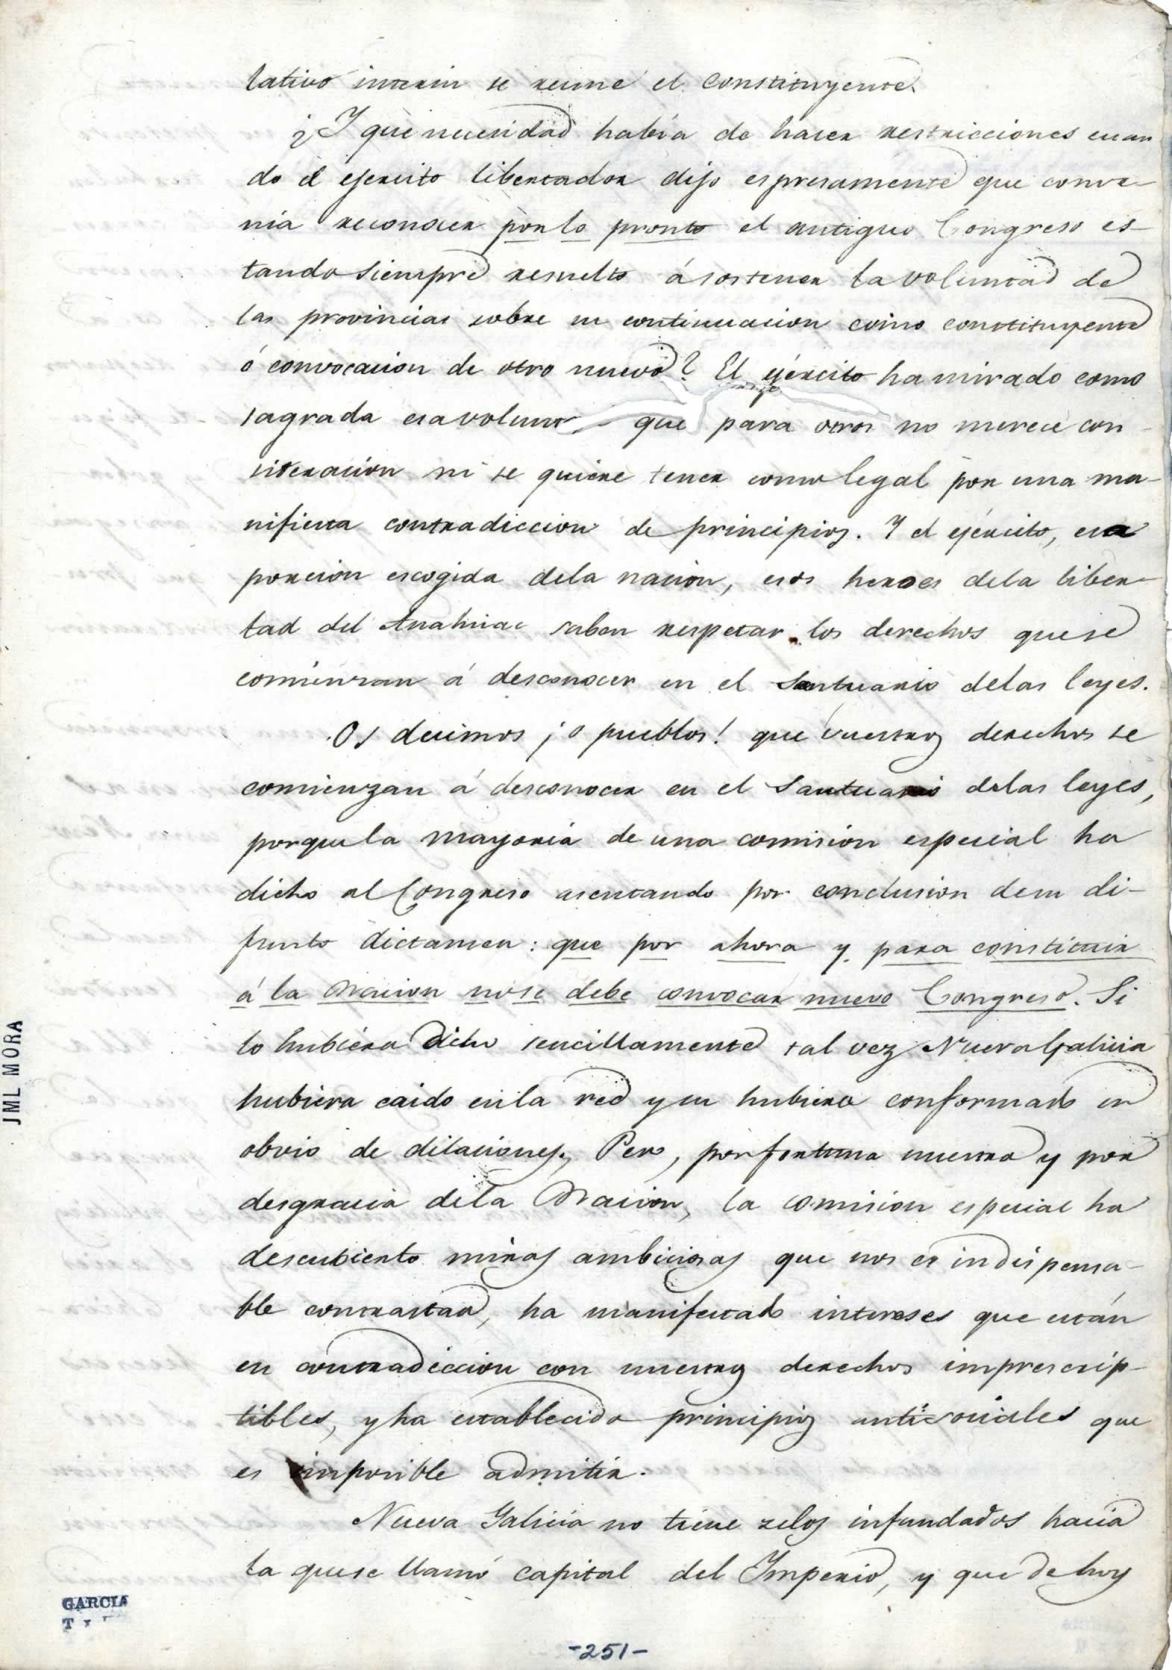 lativo interin se reune el constituyente.
¿Y que necesidad habia de hacer restricciones cuan
do el ejercito libertador dijo espresamente que conve-
nia reconocer por lo pronto el antiguo Congreso es-
tando siempre resuelto á sostener la voluntad de
las provincias sobre su continuacion como constituyente
ó convocacion de otro nuevo? El ejército ha mirado como
sagrada esa volun que para otros no merece con-
sideracion ni se quiere tener como legal por una ma-
nifiesta contradiccion de principios. Y el ejército, esa
porcion escogida dela nacion, esos heroes dela liber-
tad del Anahuac saben respetar los derechos que se
comienzan á desconocer en el Santuario delas leyes.
Os decimos ¡o pueblos! que vuestros derechos se
comienzan á desconocer en el Santuario delas leyes,
porque la mayoria de una comision especial ha
dicho al Congreso asentando por conclusion de su di-
funto dictamen: que por ahora y para constituir
á la Nacion no se debe convocar nuevo Congreso. Si
lo hubiera dicho sencillamente tal vez Nueva Galicia
hubiera caido en la red y se hubiera conformado en
obvio de dilaciones. Pero, por fortuna nuestra y por
desgracia dela Nacion, la comision especial ha
descubierto miras ambiciosas que nos es indispensa-
ble contrastar, ha manifestado intereses que están
en contradiccion con nuestros derechos imprescrip-
tibles, y ha establecido principios antisociales que
es imposible admitir.
Nueva Galicia no tiene zelos infundados hacia
la que se llamó capital del Imperio, y que de hoy
JML MORA
GARCIA
-251-